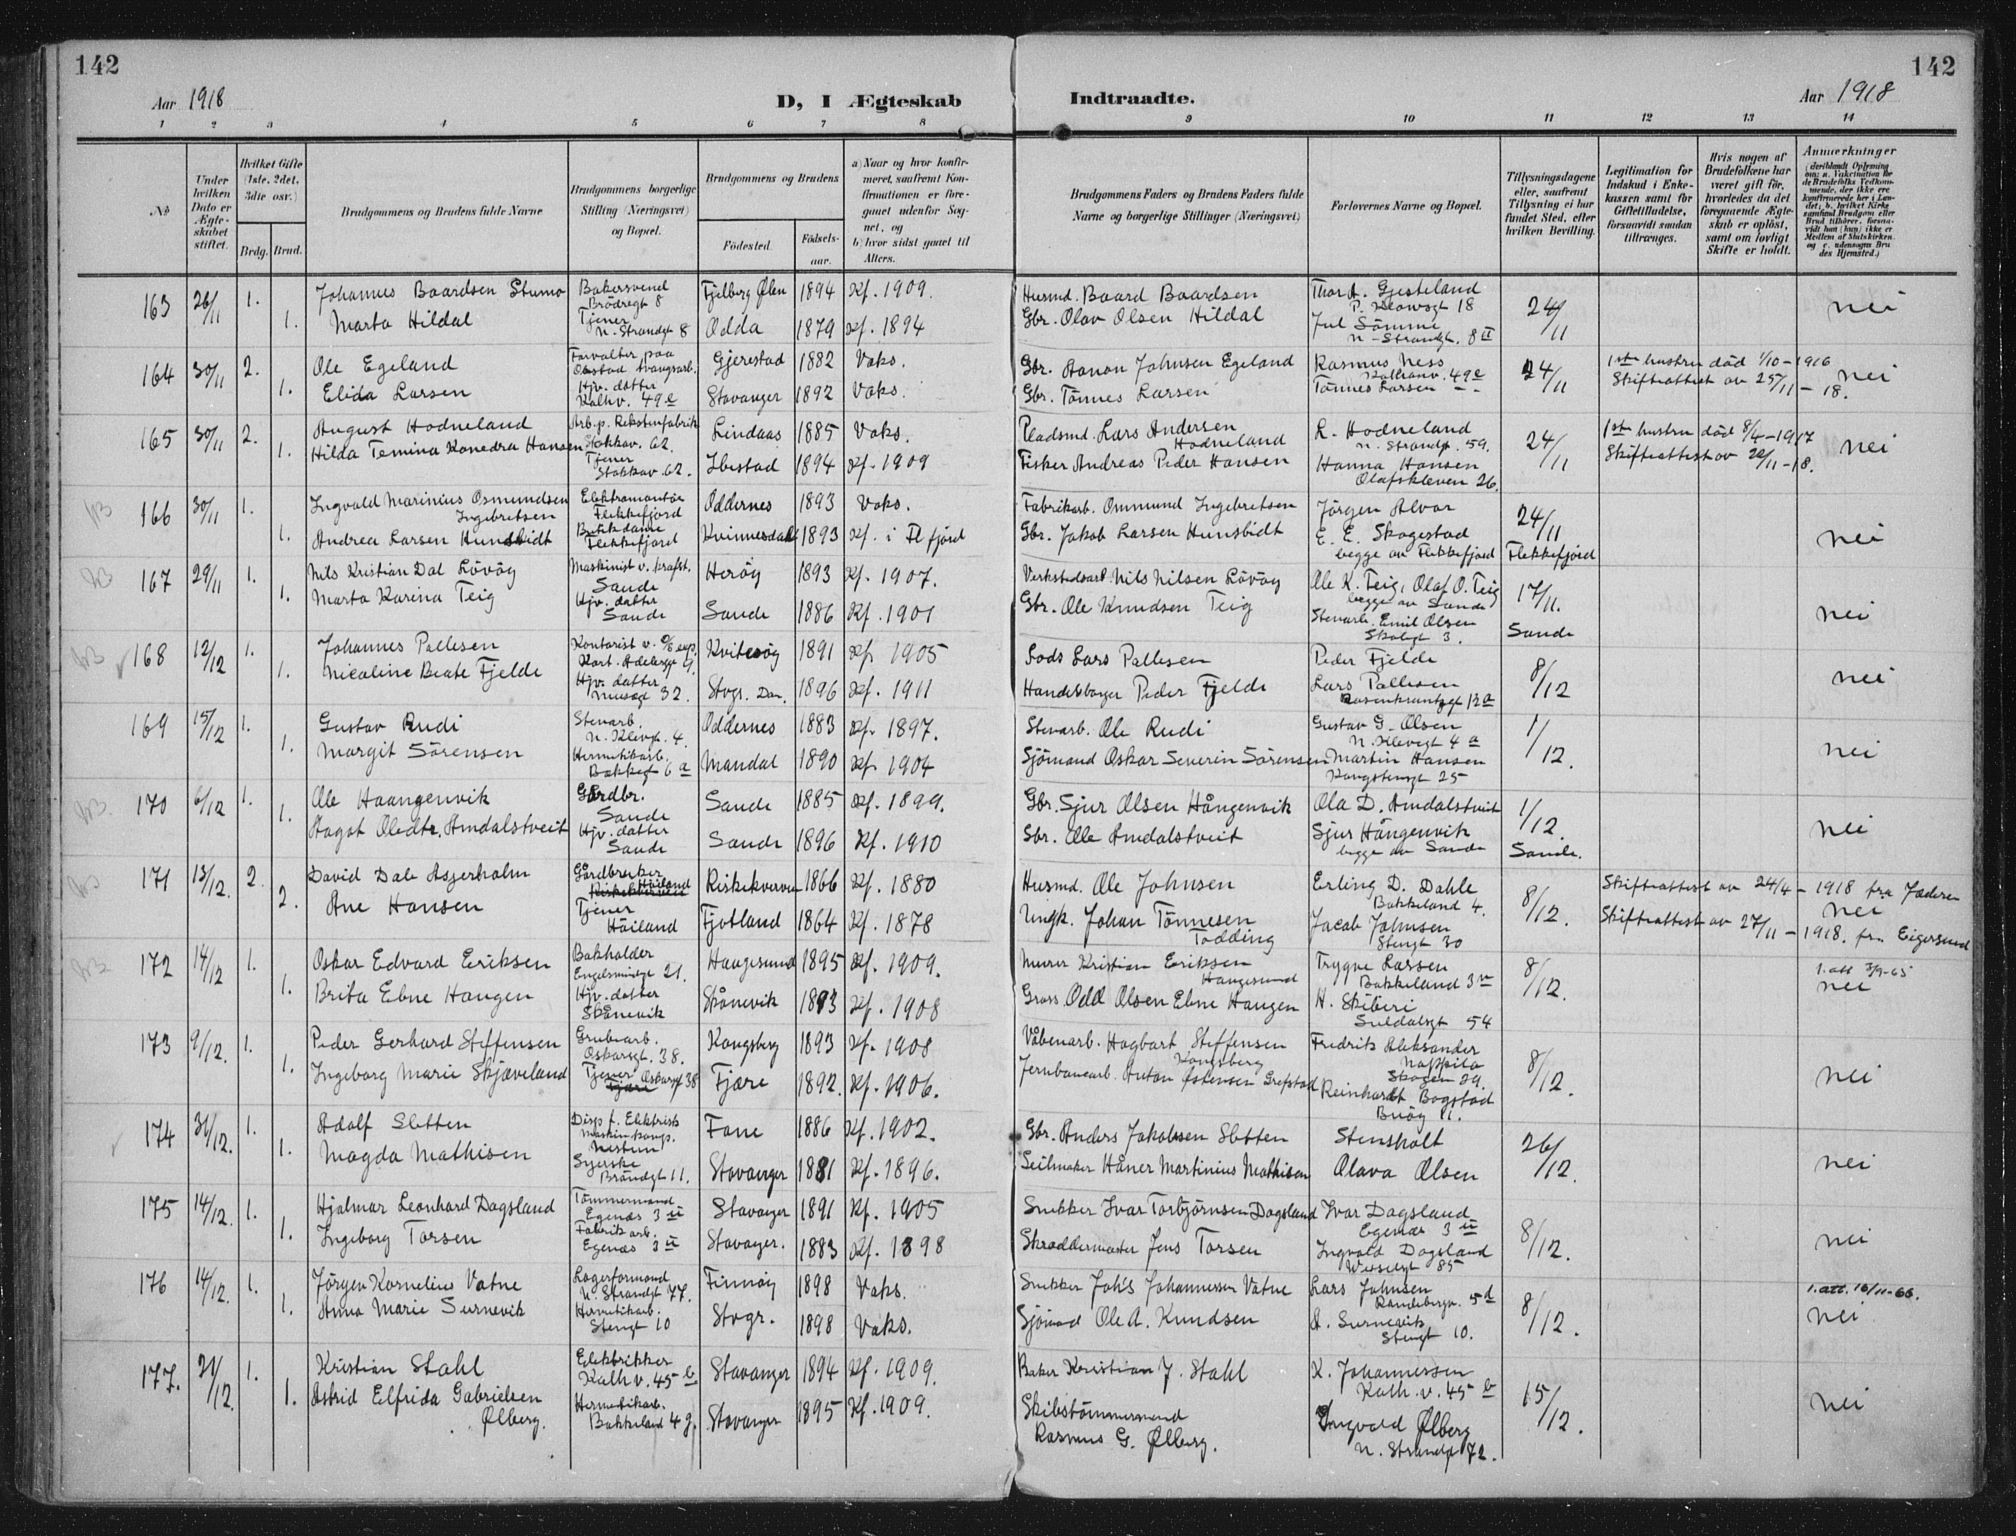 142
142
Aar 1918
D, I Ægteskab
Indtraadte.
Aar 1918
1 2 3 4 5 6 7 8 9 10 11 12 13 14
No
Under hvilken Dato er Ægteskabet stiftet.
Hvilket Gifte (1ste, 2det, 3dte osv.)
Brdg. Brud.
Brudgommens og Brudens fulde Navne
Brudgommens borgerlige Stilling (Næringsvei) og Bopæl.
Brudgommens og Brudens
Fødested.
Fødsels-aar.
a) Naar og hvor konfirmeret, saafremt Konfirmationen er foregaaet udenfor Sognet, og
b) hvor sidst gaaet til Alters.
Brudgommens Faders og Brudens Faders fulde Navne og borgerlige Stillinger (Næringsvei)
Forlovernes Navne og Bopæl.
Tillysningsdagene eller, saafremt Tillysning ei har fundet Sted, efter hvilken Bevilling.
Legitimation for Indskud i Enkekassen samt for Giftetilladelse, forsaavidt saadan tiltrænges.
Hvis nogen af Brudefolkene har været gift før, hvorledes da det foregaaende Ægteskab er opløst, samt om lovligt Skifte er holdt.
Anmærkninger
163 26/11 1. Johannes Baardsen Stumo Bakersvend Brödregt 8 Fjelberg Ølen 1894 Kf. 1909. Husmd. Baard Baardsen Thor A. Gjesteland 18 24/11 nei
1. Marta Hildal Tjener N. Strandgt 8 Odda 1879 Kf. 1894 Gbr. Olav Olsen Hildal Jul Sömme N. Strandgt. 8 II
164 30/11 2. Ole Egeland Forvalter paa Gjerestad 1882 Vaks. Gbr. Aanon Johnsen Egeland Rasmus Ness 24/11 1ste hustru död 1/10-1916 nei
1. Elida Larsen Hjv. datter Kalhv. 49 e Stavanger 1892 Vaks. Gbr. Tönnes Larsen Tönnes Larsen Skifteattest av 25/11-18.
165 30/11 2. August Hodneland Arb. p. Rekstinfabrik Stokkav. 62. Lindaas 1885 Vaks. Pladsmd. Lars Andersen Hodneland R. Hodneland N. Strandgt. 59. 24/11 1ste hustru död 8/4-1917 nei
1. Hilda Temina Konedra Hansen Tjener Stokkav. 62. Ibestad 1894 Kf. 1909 Fisker Andreas Peder Hansen Hanna Hansen Olafskleven 26. Skifteattest av 22/11-18.
166 30/11 1. Ingvald Marinius Osmundsen Ingebretsen Elektromontör Flekkefjord Oddernes 1893 Vaks. Fabrikarb. Ommund Ingebretsen Jörgen Alvar 24/11 nei
1. Andrea Larsen Hunsbidt Butikdame Flekkefjord Kvinnesdal 1893 Kf. i Fl fjord Gbr. Jakob Larsen Hunsbidt E. E. Skogestad begge av Flekkefjord Flekkefjord
167 29/11 1. Nils Kristian Dal Lövög Maskinist v. kraftst. Sande Heröy 1893 Kf. 1907. Verkstedsarb. Nils Nilsen Lövög Ole K. Teig, Olaf O. Teig begge av Sande 17/11. nei
1. Marta Karina Teig Hjv. datter Sande Sande 1886 Kf. 1901 Gbr. Ole Knudsen Teig Stenarb. Emil Olsen Skolegt 3. Sande
168 12/12 1. Johannes Pallesen Kontorist v. Kvitesöy 1891 Kf. 1905 Lods Lars Pallesen Peder Fjelde 8/12 nei
1. Nicoline Beate Fjelde Hjv. datter Musegt 32. Stvgr. Dom. 1896 Kf. 1911 Handelsborger Peder Fjelde Lars Pallesen Rosenkrantzgt 12 a
169 15/12 1. Gustav Rudi Stenarb. N. Klevgt. 4. Oddernes 1883 Kf. 1897. Stenarb. Ole Rudi Gustav G. Olsen N. Klevegt 4 a 1/12. nei
1. Margit Sörensen Hermetikarb. Bakkegt 6 a Mandal 1890 Kf. 1904 Sjömand Oskar Severin Sörensen Martin Hansen Kongstensgt 25
170 6/12 1. Ole Haangenvik Gårdbr. Sande Sande 1885 Kf. 1899. Gbr. Sjur Olsen Hångenvik Ola D. Amdalstveit 1/12. nei
1. Aagot Oledtr. Amdalstveit Hjv. datter Sande Sande 1896 Kf. 1910 Gbr. Ole Amdalstveit Sjur Hångenvik begge av Sande Sande.
171 13/12. 2. David Dale Asgerholm Gårdbruker Höiland Birkekverven 1866 Kf. 1880 Husmd. Ole Johnsen Erling D. Dahle Bakkeland 4. 8/12. Skifteattest av 24/4-1918 fra Jæderen nei
2. Ane Hansen Tjener Höiland Fjotland 1864 Kf. 1878 Ungk. Johan Tönnesen Todding Jacob Johnsen Stengt 30 Skifteattest av 27/11-1918. fra Eigersund
172 14/12 1. Oskar Edvard Eriksen Bokholder Engelsmindegt 21. Haugesund 1895 Kf. 1909. Murer Kristian Eriksen Haugesund Trygve Larsen Bakkeland 3 8/12. 1. att 7/9-65 nei
1. Brita Ebne Hangen Hjv. datter Skånevik Skånevik 1893 Kf. 1908 Gross. Odd Olsen Ebne Hangen H. Skiberi Suldalsgt 54
173 9/12. 1. Peder Gerhard Steffensen Grubearb. Oskarsgt. 38. Kongsberg 1893 Kf. 1908 Våbenarb. Hagbart Steffensen Kongsberg Fredrik Aleksander Skogen 29. 8/12. nei
1. Ingeborg Marie Skjæveland Tjener Oskarsgt 38 Fjære 1892. Kf. 1906. Jernbanearb. Anton Østensen Grefstad Reinhardt Bogstad Buöy 11.
174 31/12. 1. Adolf Sletten Disp f. Elektrisk Maskinkomp. Nestun Fane 1886 Kf. 1902. Gbr. Anders Jakobsen Sletten Stensholt 26/12. nei
1. Magda Mathisen Syerske Brandgt 11. Stavanger 1881 Kf. 1896. Seilmaker Håner Martinius Mathisen Olava Olsen
175 14/12. 1. Hjalmar Leonhard Dagsland Tömmermand Egenæs 3 II Stavanger 1891 Kf. 1905 Snekker Ivar Torbjörnsen Dagsland Ivar Dagsland Egenæs 3 II 8/12. nei
1. Ingeborg Torsen Fabrikarb. Egenæs 3 II Stavanger. 1883 Kf. 1898 Skræddermester Jens Torsen Ingvald Dagsland Wesselsgt 85
176 14/12. 1. Jörgen Kornelius Vatne Lagerformand N. Strandgt 77. Finnöy 1898 Vaks. Snekker Joh's Johannessen Vatne Lars Johnsen Randebergv. 5 d 8/12. 1. att. 16/11-66. nei
1. Anna Marie Surnevik Hermetikarb. Stengt 10 Stvgr. 1898 Vaks. Sjömand Ole A. Knudsen A. Surnevik Stengt 10.
177. 21/12. 1. Kristian Stahl Elektriker Kalh v. 45 b Stavanger 1894 Kf. 1909. Baker Kristian J. Stahl K. Johannessen Kalh. v. 45 b 15/12. nei
1. Astrid Elfrida Gabrielsen Ølberg. Hermetikarb. Bakkeland 4 g. Stavanger 1895 Kf. 1909. Skibstömmermand Rasmus G. Ølberg. Ingvald Ølberg N. Strandgt 72.